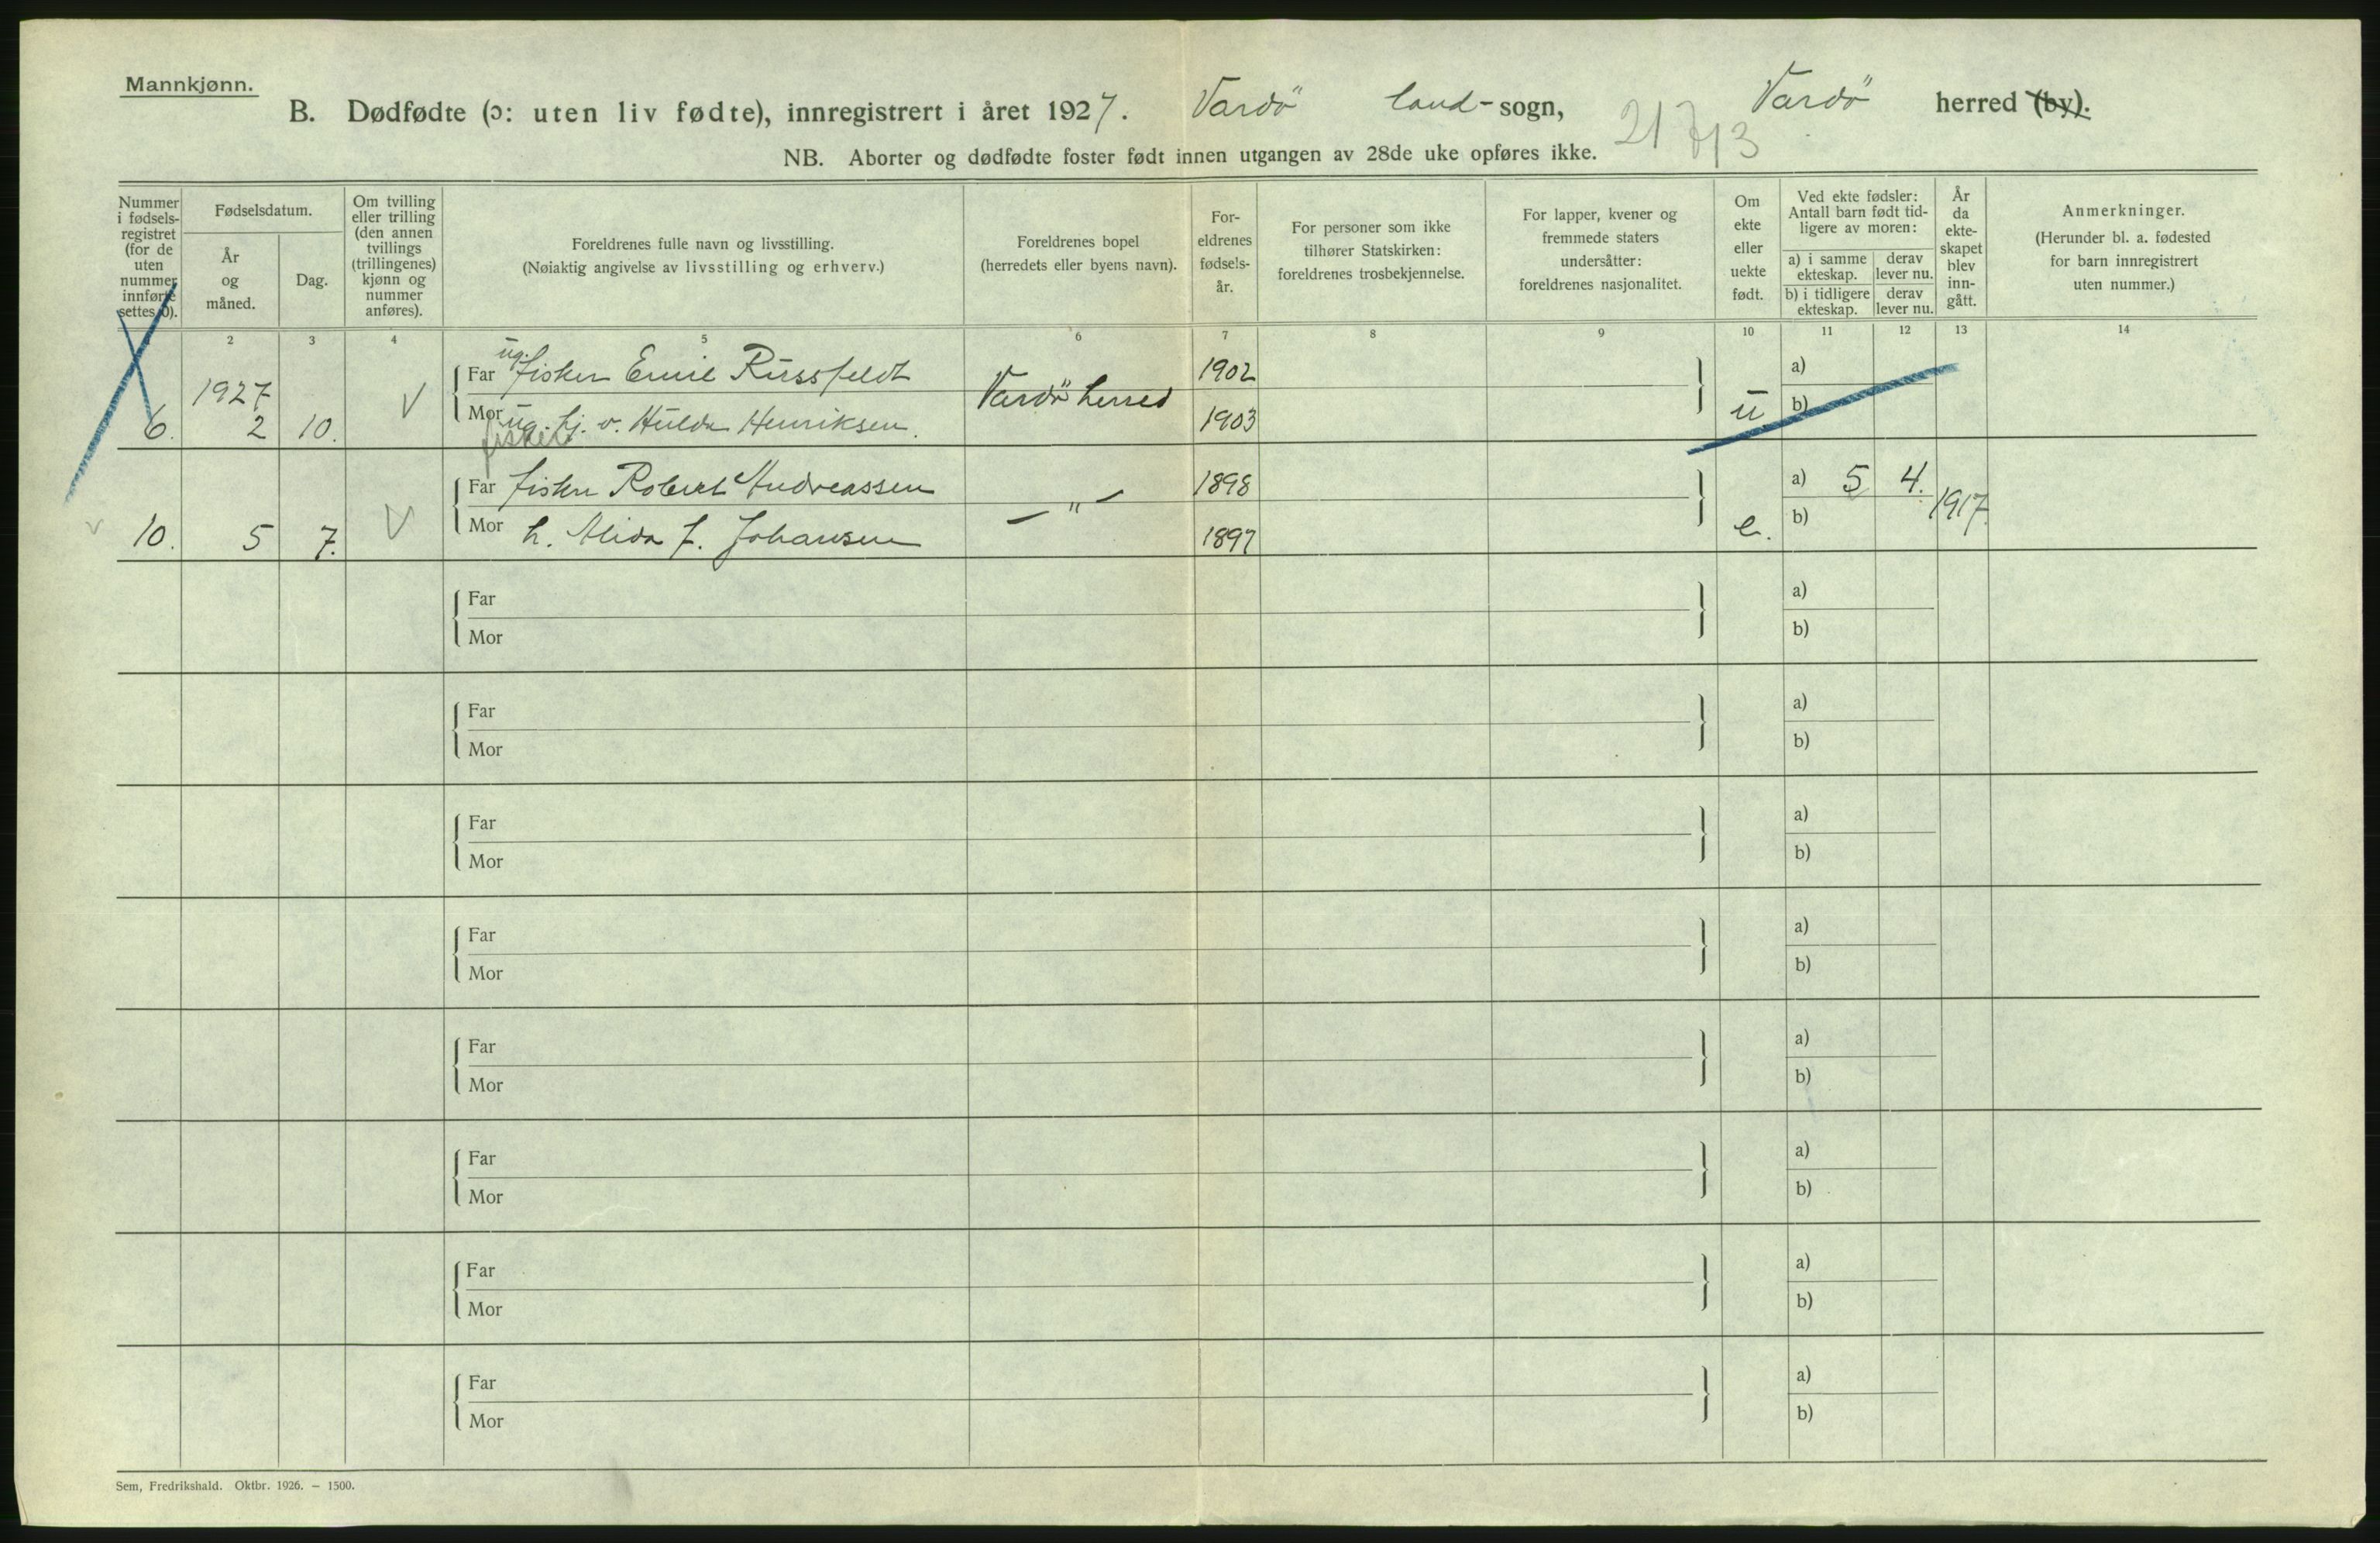 Mannkjønn.
B. Dødfødte (ɔ: uten liv fødte), innregistrert i året 1927. Vardö land-sogn, Vardö herred (by).
NB. Aborter og dødfødte foster født innen utgangen av 28de uke opføres ikke.
Nummer i fødsels-registret (for de uten nummer innførte settes 0).
Fødselsdatum.
År og måned.
Dag.
Om tvilling eller trilling (den annen tvillings (trillingenes) kjønn og nummer anføres).
Foreldrenes fulle navn og livsstilling.
(Nøiaktig angivelse av livsstilling og erhverv.)
Foreldrenes bopel
(herredets eller byens navn).
For-eldrenes fødsels-år.
For personer som ikke tilhører Statskirken: foreldrenes trosbekjennelse.
For lapper, kvener og fremmede staters undersåtter: foreldrenes nasjonalitet.
Om ekte eller uekte født.
Ved ekte fødsler: Antall barn født tid-ligere av moren:
a) i samme ekteskap. derav lever nu.
b) i tidligere ekteskap. derav lever nu.
År da ekte-skapet blev inn-gått.
Anmerkninger.
(Herunder bl. a. fødested for barn innregistrert uten nummer.)
2 3 4 5 6 7 8 9 10 11 12 13 14
ug.
Far fisker Emil Russfeldt 1902 a)
1927 V Vardö herred
6. 2 10. Mor ug. hj. v. Hulda Henriksen. 1903 u b)
fisker
Far fisker Robert Andreassen 1898 a) 5 4.
V — " — 1917.
10. 5 7. Mor h. Alida J. Johansen 1897 e. b)
Far a)
Mor b)
Far a)
Mor b)
Far a)
Mor b)
Far a)
Mor b)
Far a)
Mor b)
Far a)
Mor b)
Far a)
Mor b)
Far a)
Mor b)
Sem, Fredrikshald. Oktbr. 1926. — 1500.